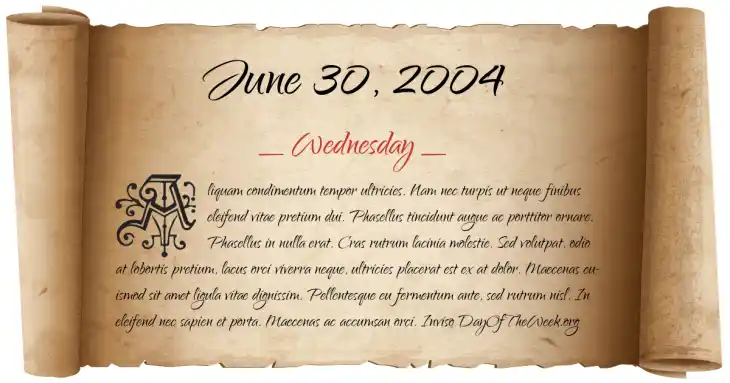 June 30, 2004
_ Wednesday _
Aliquam condimentum tempor ultricies. Nam nec turpis ut neque finibus
eleifend vitae pretium dui. Phasellus tincidunt augue ac porttitor ornare.
Phasellus in nulla erat. Cras rutrum lacinia molestie. Sed volutpat, odio
at lobortis pretium, lacus orci viverra neque, ultricies placerat est ex at dolor. Maecenas eu-
ismod sit amet ligula vitae dignissim. Pellentesque eu fermentum ante, sed rutrum nisl. In
eleifend nec sapien et porta. Maecenas ac accumsan orci. Inviso DayOfTheWeek.org